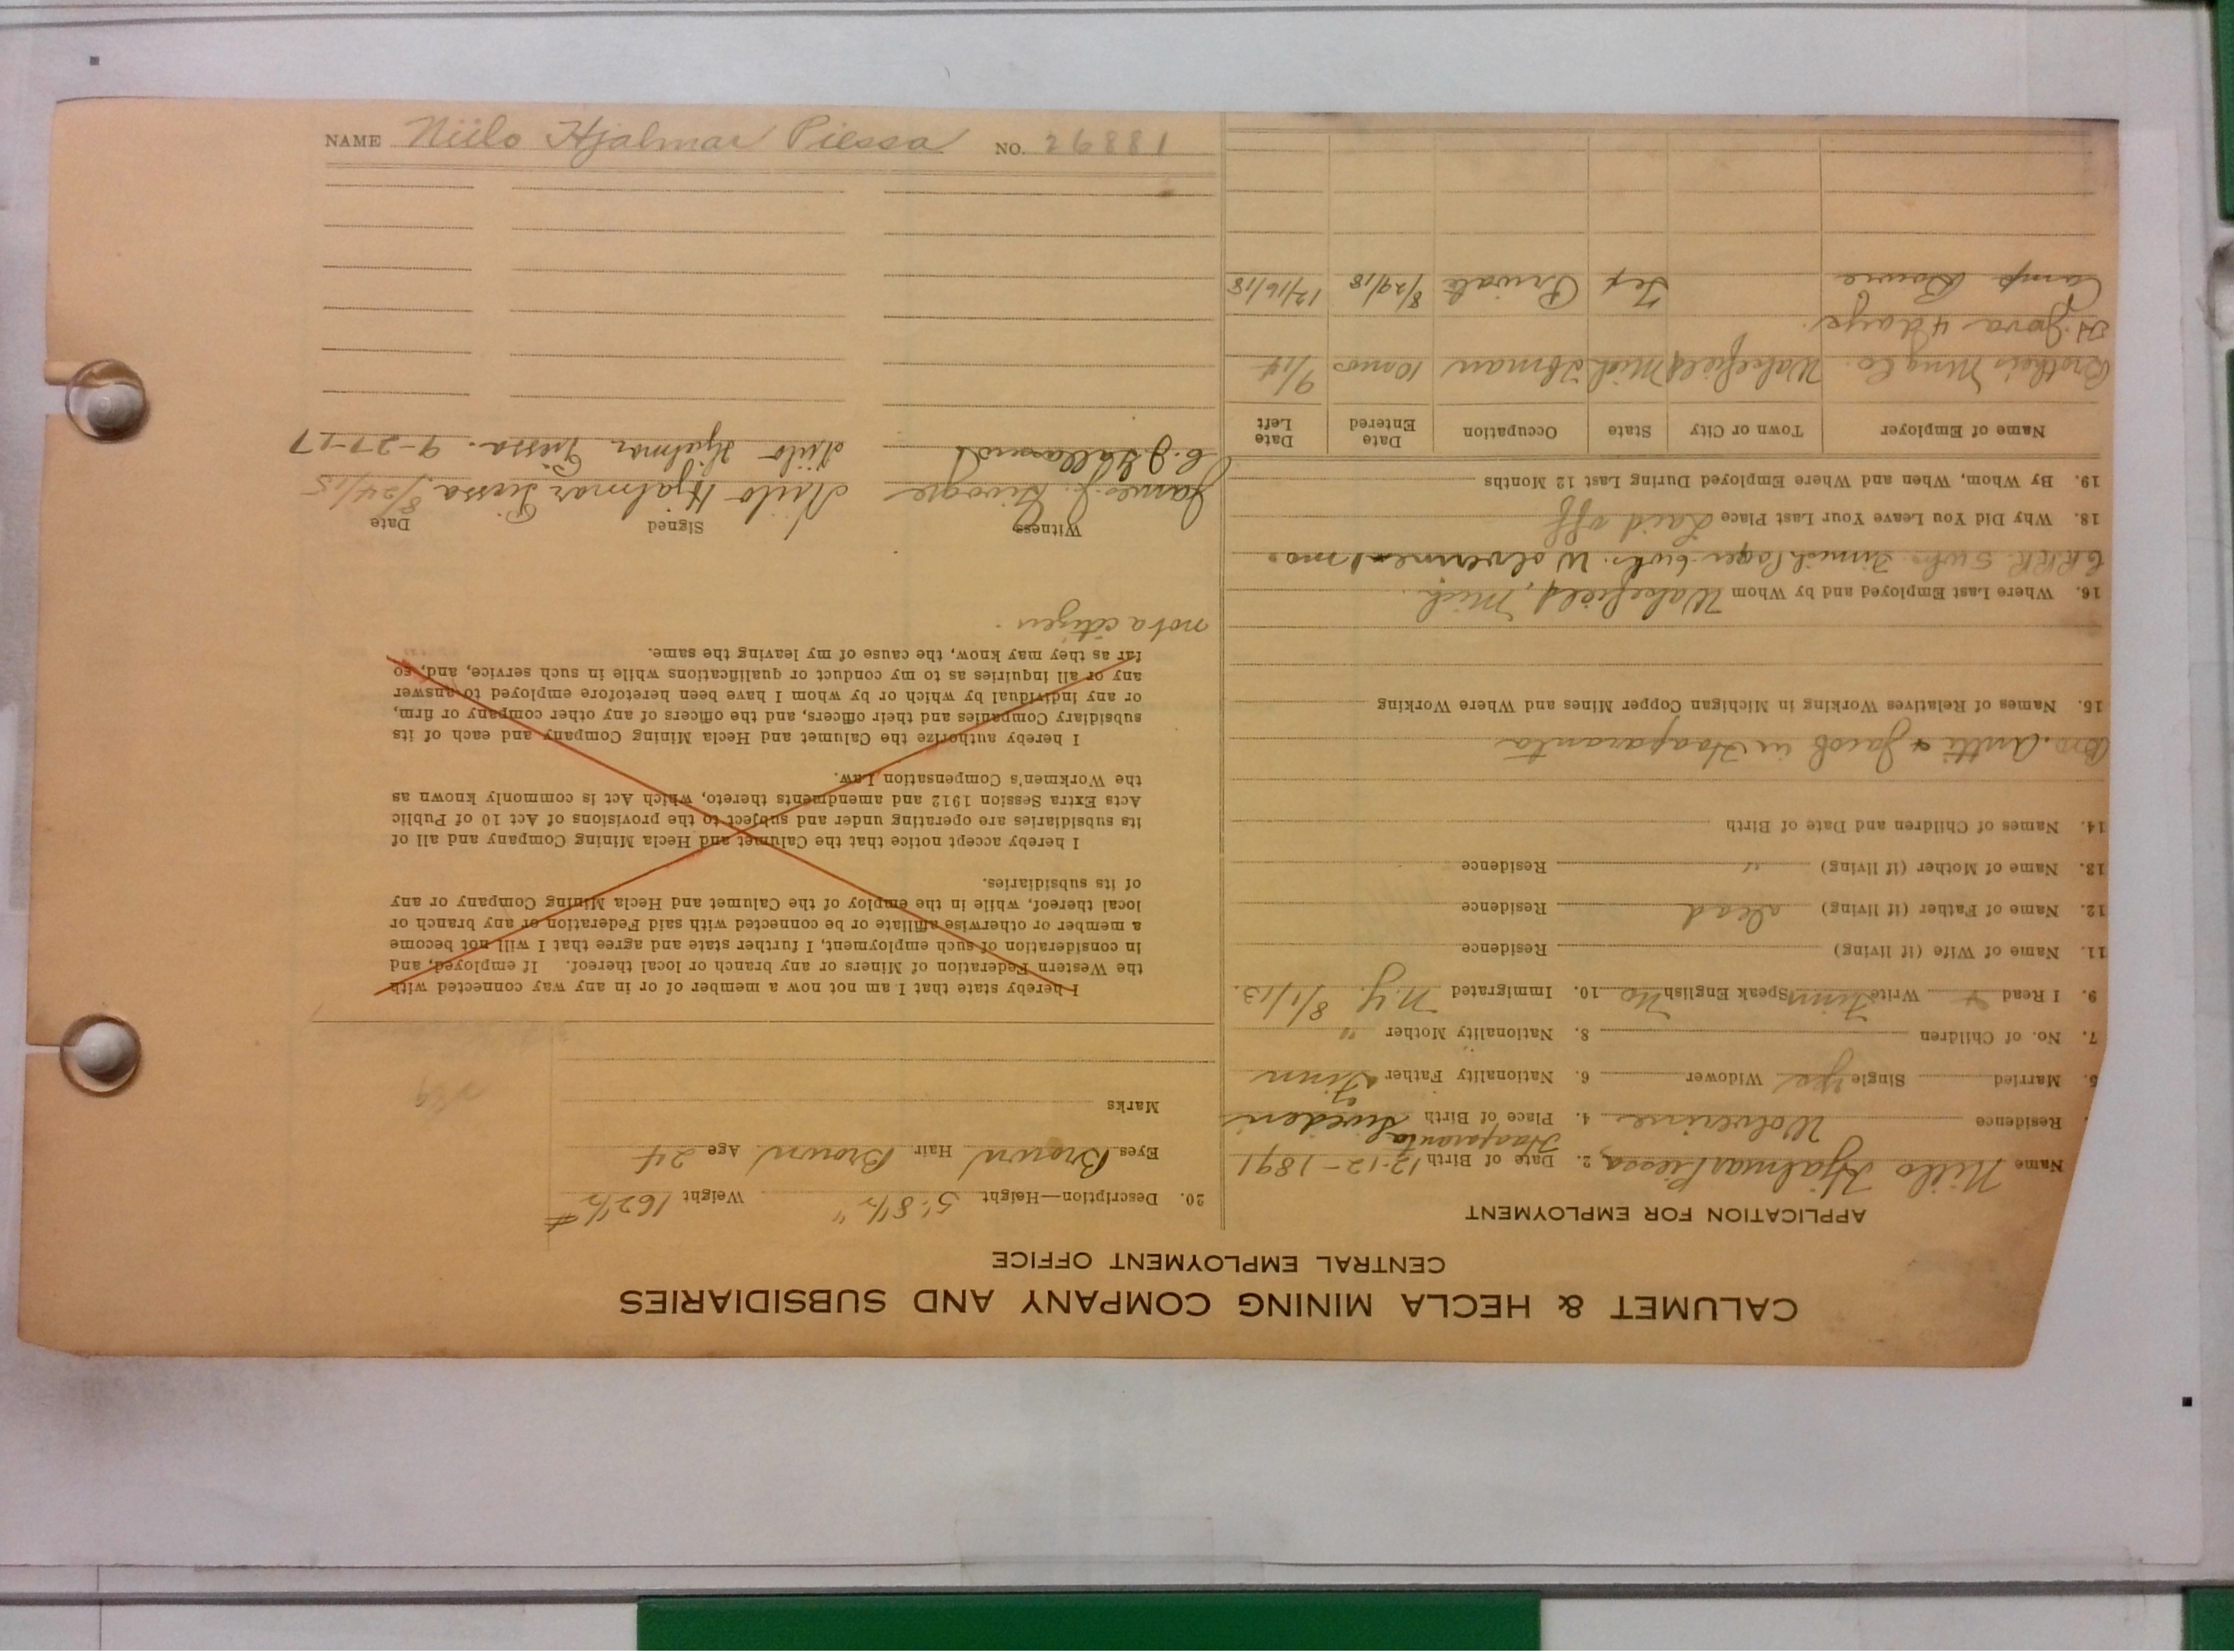 CALUMET & HECLA MINING COMPANY AND SUBSIDIARIES
CENTRAL EMPLOYMENT OFFICE
APPLICATION FOR EMPLOYMENT
Name Niilo Hjalmar Piessa 2. Date of Birth 12-12-1891
Haaparanta
Residence Wolverine 4. Place of Birth Sweden
5. Married Single yes Widower 6. Nationality Father Finn
7. No. of Children 8. Nationality Mother "
9. I Read & Write Finn Speak English No 10. Immigrated N.Y. 8/1/13.
11. Name of Wife (if living) Residence
12. Name of Father (if living) dead Residence
13. Name of Mother (if living) " Residence
14. Names of Children and Date of Birth
Bro. Antti & Jacob in Haaparanta
15. Names of Relatives Working in Michigan Copper Mines and Where Working
16. Where Last Employed and by Whom Wakefield, Mich.
5 wks. 6 wks. Wolverine 1 mo.
18. Why Did You Leave Your Last Place Laid off
19. By Whom, When and Where Employed During Last 12 Months
Name of Employer Town or City State Occupation Date Entered Date Left
Brotheis Mng Co. Wakefield Mich Tbman 10 mos 9/14
4 days.
Camp Bowie Tex Private 8/29/18 12/16/18
20. Description—Height 5' 8 1/2" Weight 162 1/2 #
Eyes Brown Hair Brown Age 24
Marks
I hereby state that I am not now a member of or in any way connected with
the Western Federation of Miners or any branch or local thereof. If employed, and
in consideration of such employment, I further state and agree that I will not become
a member or otherwise affiliate or be connected with said Federation or any branch or
local thereof, while in the employ of the Calumet and Hecla Mining Company or any
of its subsidiaries.
I hereby accept notice that the Calumet and Hecla Mining Company and all of
its subsidiaries are operating under and subject to the provisions of Act 10 of Public
Acts Extra Session 1912 and amendments thereto, which Act is commonly known as
the Workmen's Compensation Law.
I hereby authorize the Calumet and Hecla Mining Company and each of its
subsidiary Companies and their officers, and the officers of any other company or firm,
or any individual by which or by whom I have been heretofore employed to answer
any or all inquiries as to my conduct or qualifications while in such service, and, so
far as they may know, the cause of my leaving the same.
not a citizen.
Witness Signed Date
James J. Niilo Hjalmar Piessa 8/24/15
C. J. Niilo Hjalmar Piessa. 9-27-17
NAME Niilo Hjalmar Piessa NO. 26881